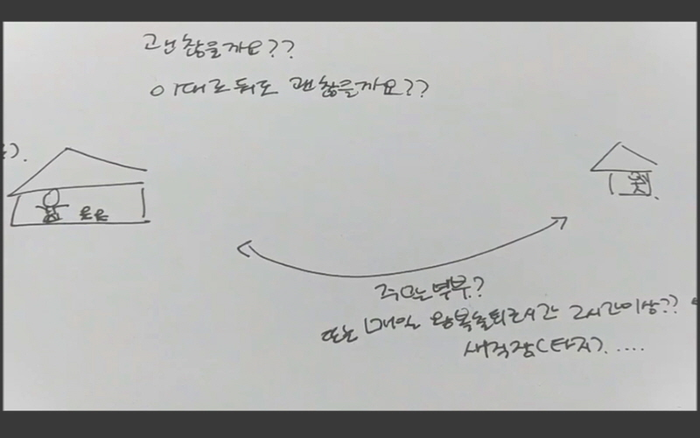 괜찮을까요??
이대로둬도 괜찮을까요??
).
주말부부?
또는 매일 왕복출퇴근시간 2시간이상??
새직장(타지).....